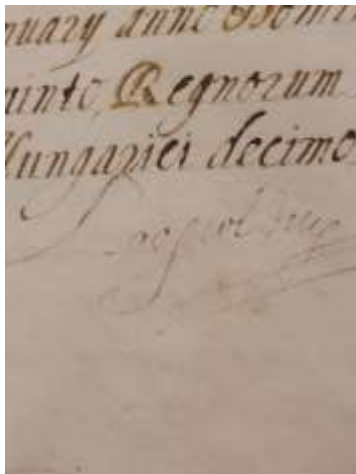 nuarÿ anno Domi
uinto, Regnorum
Hungarici decimo
Leopoldus